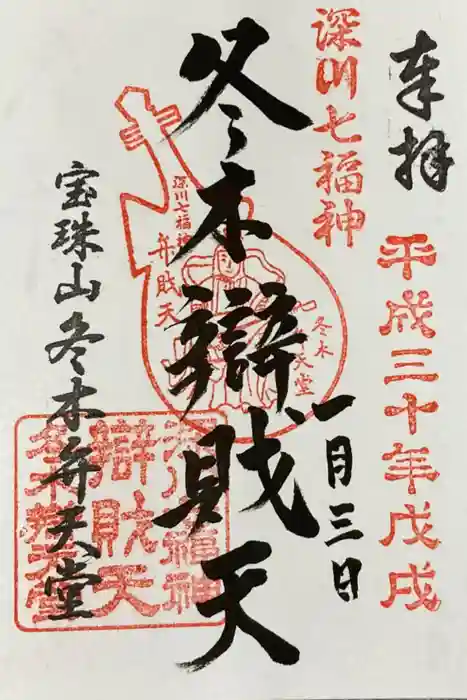 奉拝
平成三十年戊戌
一月三日
深川七福神
冬木辯財天
深川七福神
弁財天
冬木
天堂
宝珠山冬木弁天堂
深川七福神
辯財天
冬木辯天堂